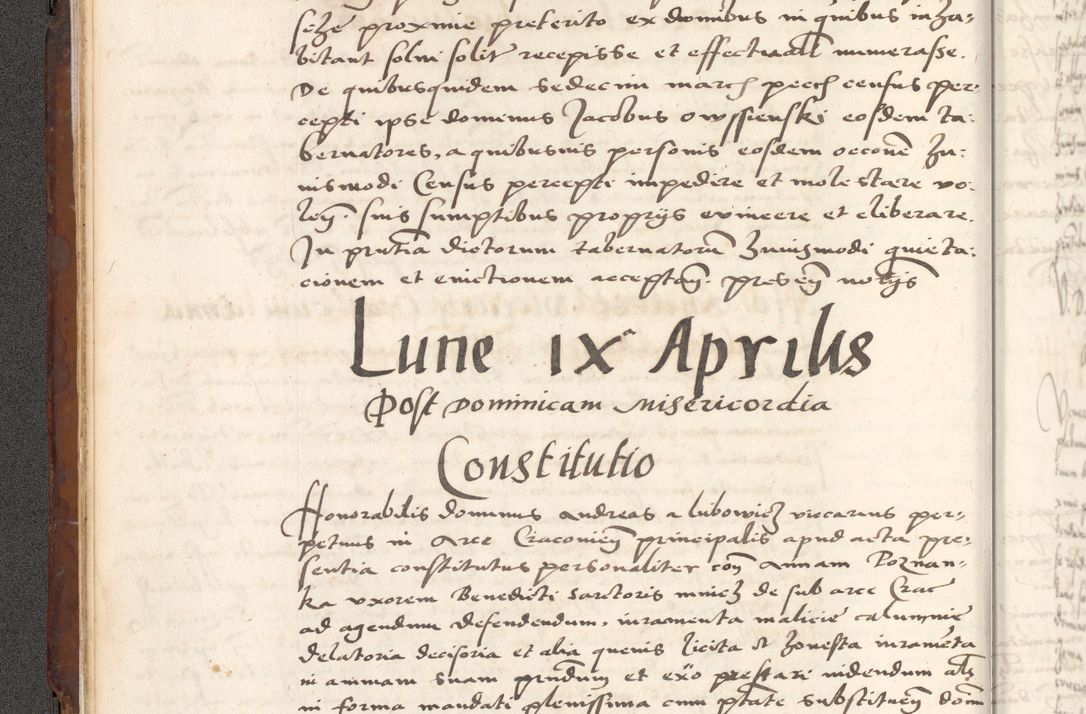 seze proxime preterito ex domibus in quibus inha-
bitant solui solit recepisse et effectuall numerasse.
De quibusquidem sedecim march pecch census per-
cepti ipse dominus Jacobus owssienski eosdem ta-
bernatores, a quibusuis personis eosdem occone hu-
iusmodi Census percepti impedire et molestare vo-
len. suis sumptibus proprijs euincere et eliberare.
In pntia dictorum tabernatoru huiusmodi quieta-
cionem et euictionem acceptan. presen
Lune ix Aprilis
Post Dominicam Misericordia
Constitutio
Honorabilis dominus Andreas a lubowicz vicarius per-
petuus in Arce Cracouien principalis apud acta pre-
sentia constitutus personaliter con Annam Poznan-
ka vxorem Benedicti sartoris de sub arce Crac
ad agendum defendendum, iuramenta malicie calumnie
delatoria decisoria et alia queuis licita et honesta iuramenta
in animam suam prestari uidendum als
in forma mandati plenissima cum ptate substituen